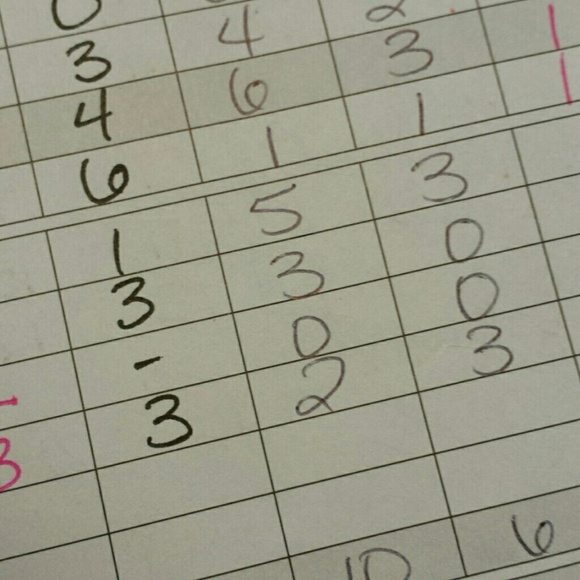 0 2
3 4 3 1
4 6 1 1
6 1 3
1 5 0
3 3 0
- 0 3
- 3 2
3
10 6